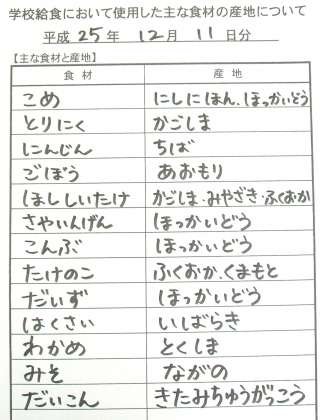 学校給食において使用した主な食材の産地について
平成 25 年 12 月 11 日分
【主な食材と産地】
食材 産地
こめ にしにほん、ほっかいどう
とりにく かごしま
にんじん ちば
ごぼう あおもり
ほししいたけ かごしま・みやざき・ふくおか
さやいんげん ほっかいどう
こんぶ ほっかいどう
たけのこ ふくおか、くまもと
だいず ほっかいどう
はくさい いばらき
わかめ とくしま
みそ ながの
だいこん きたみちゅうがっこう